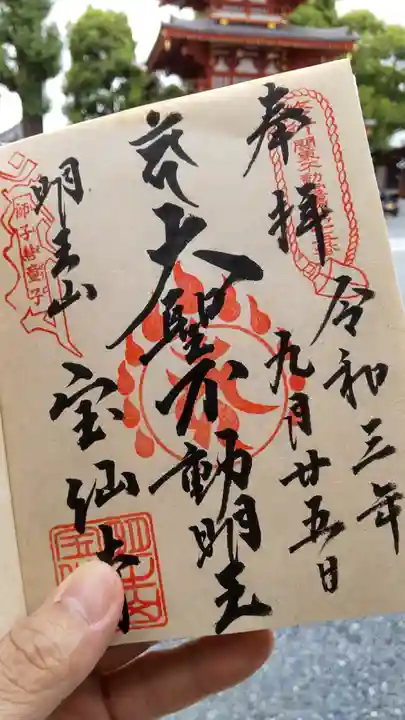 奉拝
令和三年
九月廿五日
大聖不動明王
明王山
宝仙寺
師子光童子